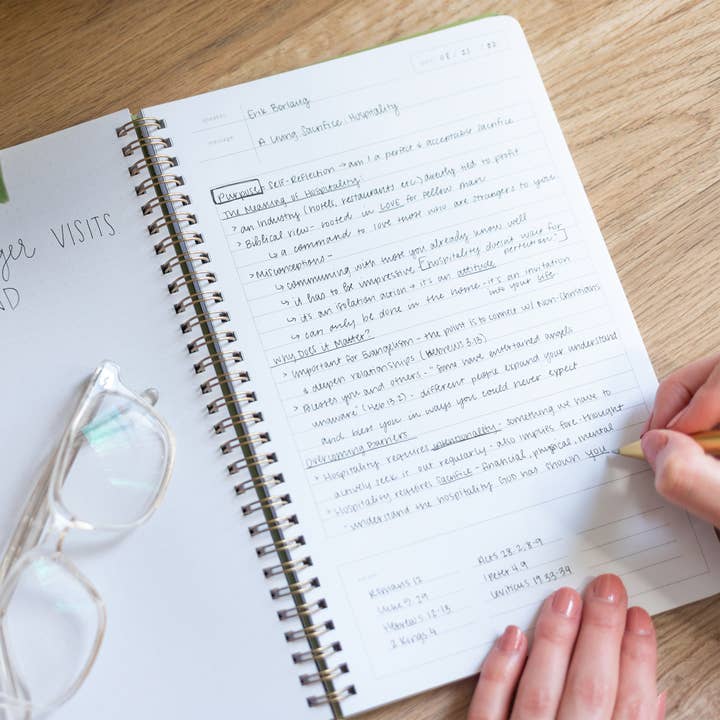 VISITS
08 / 21 / 22
Erik Borlaug
A Living Sacrifice: Hospitality
Purpose: Self-Reflection → am I a perfect & acceptable sacrifice
The Meaning of Hospitality:
> an industry (hotels, restaurants etc.) directly tied to profit
> Biblical view - rooted in LOVE for fellow man
↳ a command to love those who are strangers to you
> Misconceptions -
↳ communing with those you already know well
↳ it has to be impressive [hospitality doesn't wait for perfection]
↳ it's an isolation action → it's an attitude
↳ can only be done in the home - it's an invitation into your life
Why Does it Matter?
> Important for Evangelism - the point is to connect w/ Non-Christians
& deepen relationships (Hebrews 3.13)
> Blesses you and others - "some have entertained angels
unaware" (Heb 13.2) - different people expand your understand
and bless you in ways you could never expect
Overcoming Barriers
> Hospitality requires intentionality - something we have to
actively seek it out regularly - also implies fore-thought
> Hospitality requires sacrifice - financial, physical, mental
- understand the hospitality GOD has shown you
Romans 12
Acts 28.2, 8-9
Luke 5.29
1 Peter 4.9
Hebrews 12-13
Leviticus 19.33-34
2 Kings 4